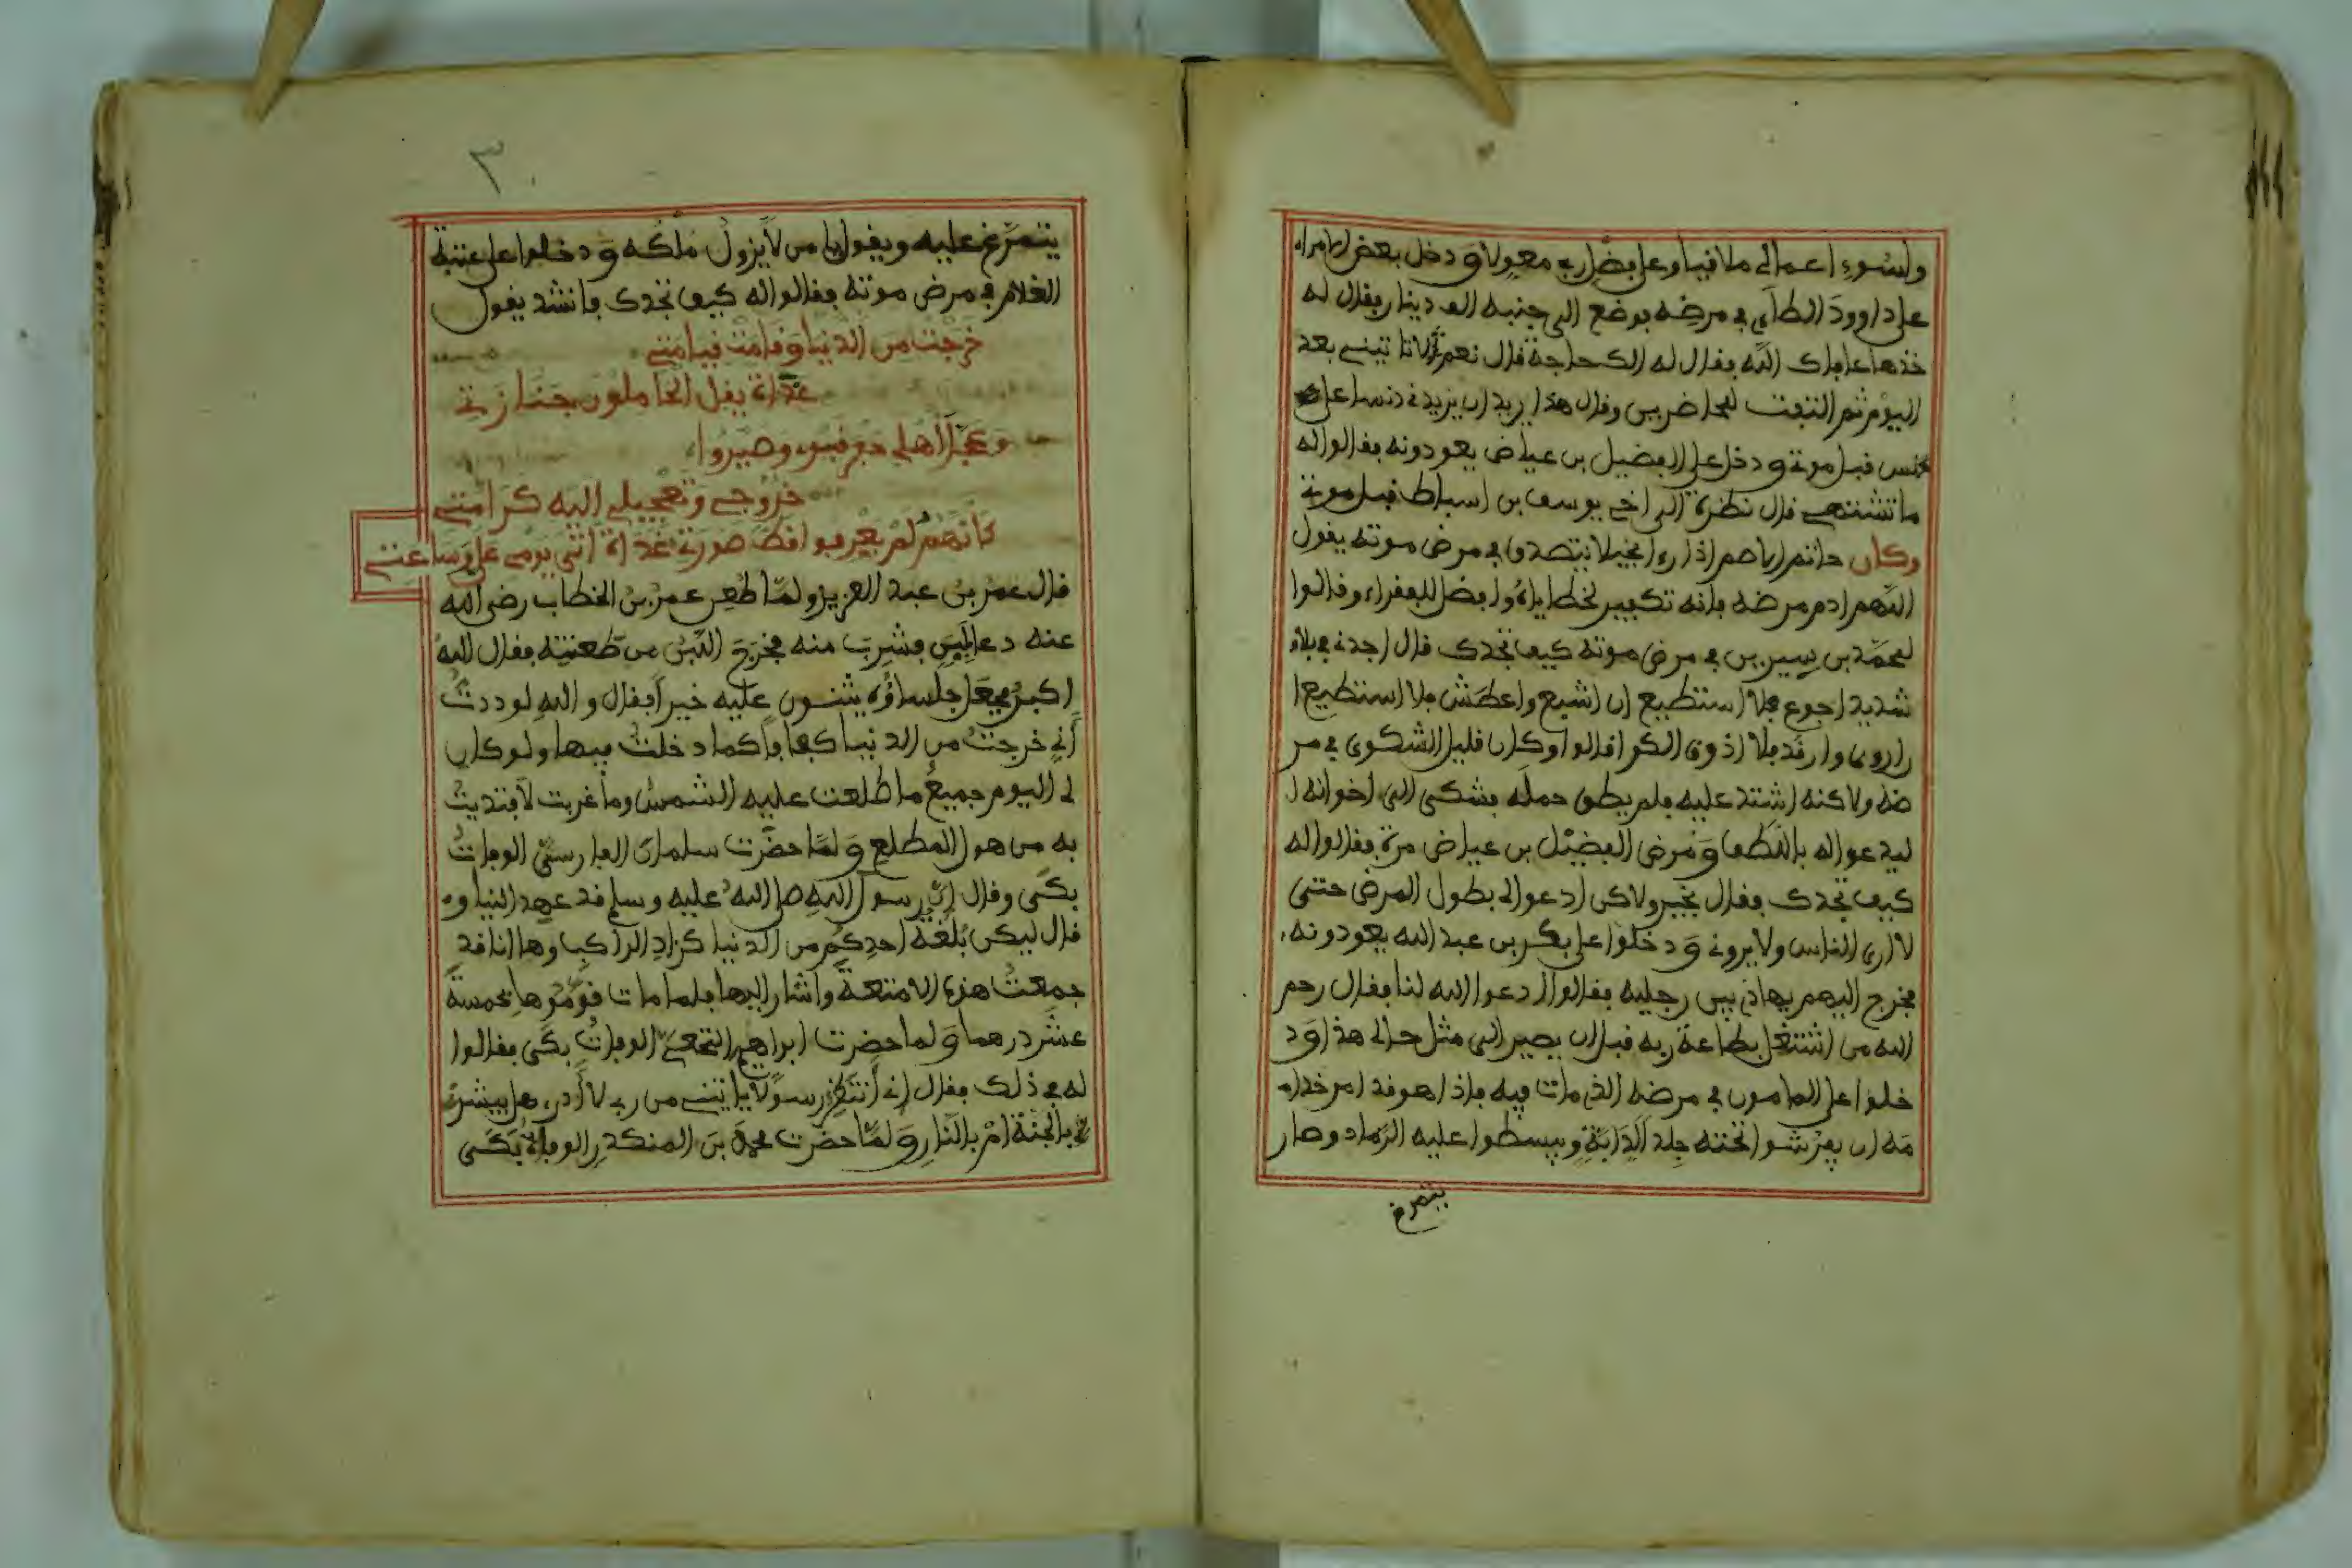 ولسوء اعمالي ملاقيا وعلى فضل ربي معولا ودخل بعض الامراء
على داوود الطائي في مرضه فوضع الى جنبه الف دينار فقال له
خذها عافاك الله فقال له الك حاجة قال نعم لا تاتيني بعد
اليوم ثم التفت للحاضرين وقال هذا يريد ان يزيدني دنسا على
دنس قبل موتي ودخل على الفضيل بن عياض يعودونه فقالوا له
ما تشتهي قال نظرة الى اخي يوسف بن اسباط قبل موتي
وكان حاتم الاصم اذا رءا بخيلا يتصدق في مرض موته يقول
اللهم ادم مرضه فانه تكفير لخطاياه وافضل للفقراء وقالوا
لمحمد بن سيرين في مرض موته كيف تجدك قال اجدني في بلاء
شديد اجوع فلا استطيع ان اشبع واعطش فلا استطيع ا
ن اروى وارقد فلا اذوق الكرا قالوا وكان قليل الشكوى في مر
ضه ولاكنه اشتد عليه فلم يطق حمله فشكى الى اخوانه ا
ليدعوا له باللطف ومرض الفضيل بن عياض مرة فقالوا له
كيف تجدك فقال بخير ولاكن ادعوا لي بطول المرض حتى
لا ارى الناس ولا يروني ودخلوا على بكر بن عبد الله يعودونه
فخرج اليهم يهادى بين رجليه فقالوا ادعوا الله لنا فقال رحم
الله من اشتغل بطاعة ربه قبل ان يصير الى مثل حالي هذا ود
خلوا على المامون في مرضه الذي مات فيه فاذا هو قد امر خدا
مه ان يفرشوا تحته جلد الدابة ويبسطوا عليه الرماد وصار
يتمرغ
٣
يتمرغ عليه ويقول يا من لا يزول ملكه ودخلوا على عتبة
الغلام في مرض موته فقالوا له كيف تجدك فانشد يقول
خرجت من الدنيا وقامت قيامتي
غداة يقل الحاملون جنازتي
وعجل اهلي حفر قبري وصيروا
خروجي وتعجيلي اليه كرامتي
كانهم لم يعرفوا قط صورتي غداة اتى يومي علي وساعتي
قال عمر بن عبد العزيز ولما طعن عمر بن الخطاب رضي الله
عنه دعا بلبن فشرب منه فخرج اللبن من طعنته فقال الله
اكبر فجعل جلساؤه يثنون عليه خيرا فقال والله لوددت
أني خرجت من الدنيا كفافا كما دخلت فيها ولو كان
لي اليوم جميع ما طلعت عليه الشمس وما غربت لافتديت
به من هول المطلع ولما حضرت سلمان الفارسي الوفات
بكى وقال ان رسول الله صلى الله عليه وسلم قد عهد الينا و
قال ليكن بلغة احدكم من الدنيا كزاد الراكب وها انا قد
جمعت هذه الامتعة واشار اليها فلما مات قوموها بخمسة
عشر درهما ولما حضرت ابراهيم النخعي الوفات بكى فقالوا
له في ذلك فقال اني أنتظر رسولا ياتيني من ربي لا أدري هل يبشر
ني بالجنة ام بالنار ولما حضرت محمد بن المنكدر الوفاة بكى